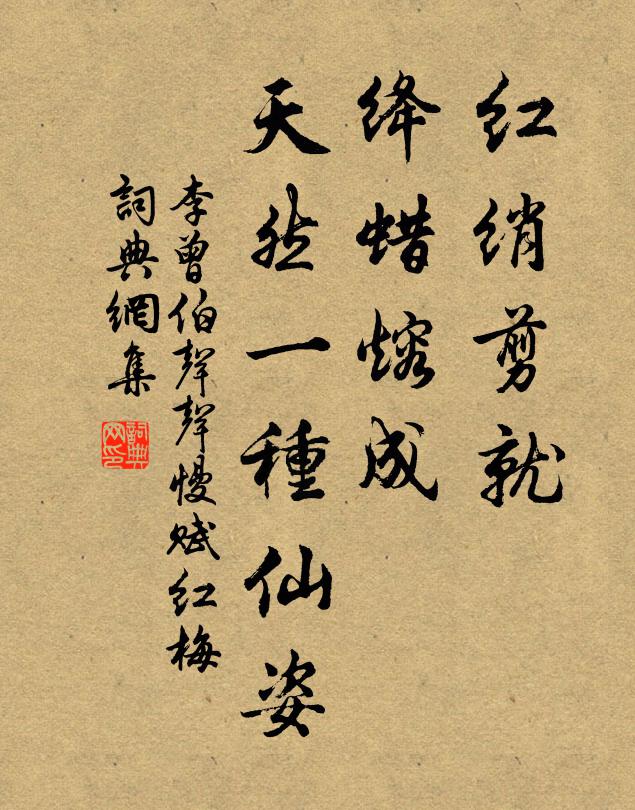 红绡剪就
绛蜡熔成
天然一種仙姿
李曾伯聲聲慢赋红梅
詞典網集
詞典
网印